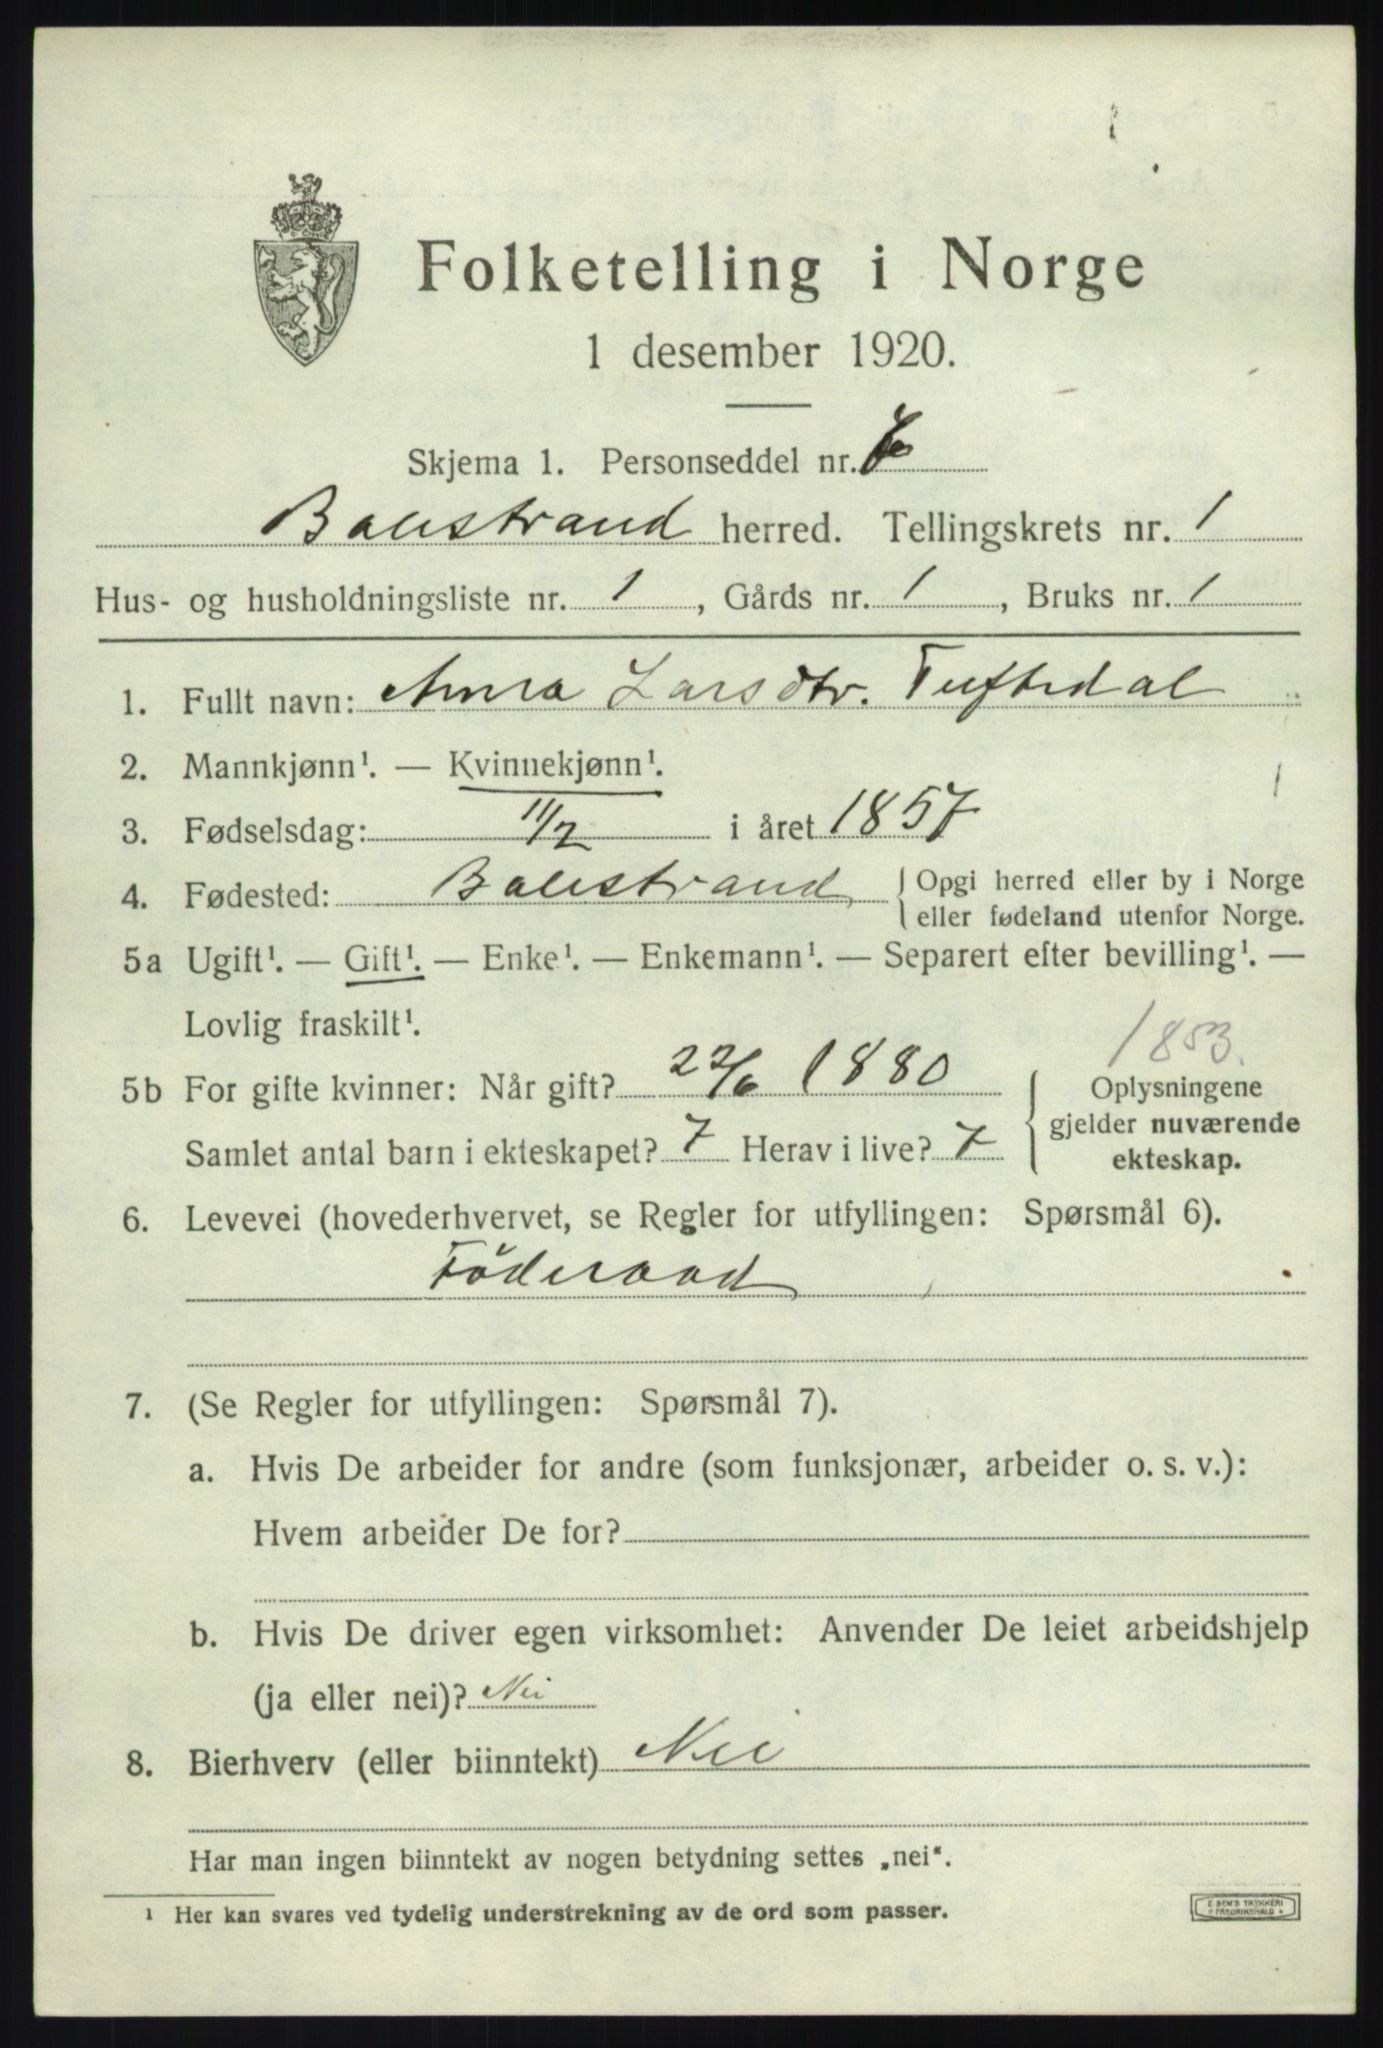 Folketelling i Norge
1 desember 1920.
Skjema 1. Personseddel nr.
Balestrand herred. Tellingskrets nr. 1
Hus- og husholdningsliste nr. 1, Gårds nr. 1, Bruks nr. 1
1. Fullt navn: Anna Larsdtr. Tuftedal
2. Mannkjønn¹. — Kvinnekjønn¹.
3. Fødselsdag: 11/2 i året 1857
4. Fødested: Balestrand { Opgi herred eller by i Norge
eller fødeland utenfor Norge.
5a Ugift¹. — Gift¹. — Enke¹. — Enkemann¹. — Separert efter bevilling¹. —
Lovlig fraskilt¹.
1853.
5b For gifte kvinner: Når gift? 22/6 1880 { Oplysningene
gjelder nuværende
ekteskap.
Samlet antal barn i ekteskapet? 7 Herav i live? 7
6. Levevei (hovederhvervet, se Regler for utfyllingen: Spørsmål 6).
Föderaad
7. (Se Regler for utfyllingen: Spørsmål 7).
a. Hvis De arbeider for andre (som funksjonær, arbeider o. s. v.):
Hvem arbeider De for?
b. Hvis De driver egen virksomhet: Anvender De leiet arbeidshjelp
(ja eller nei)? Nei
8. Bierhverv (eller biinntekt) Nei
Har man ingen biinntekt av nogen betydning settes „nei“.
¹ Her kan svares ved tydelig understrekning av de ord som passer.